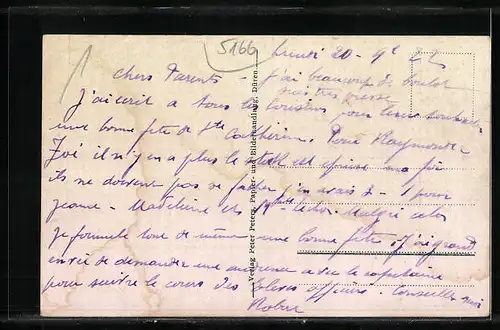 5166
Lundi 20-9e 22
Chers Parents - j'ai beaucoup de boulot
suis très pressé
J'ai écrit à tous les cousins pour leur souhaiter
une bonne fête de Ste Catherine. Pour Raymonde
il n'y en a plus le est ma foi
ils ne doivent pas se fâcher j'en avais 2 - 1 pour
Jeanne - Madeleine et Malgré cela
je formule tout de même une bonne fête. J'ai grand
envie de demander une audience à le capitaine
pour suivre le cours des élèves officiers. Conseillez moi
Robert
Verlag Peter Peters, Papier- und Bilderhandlung, Düren.